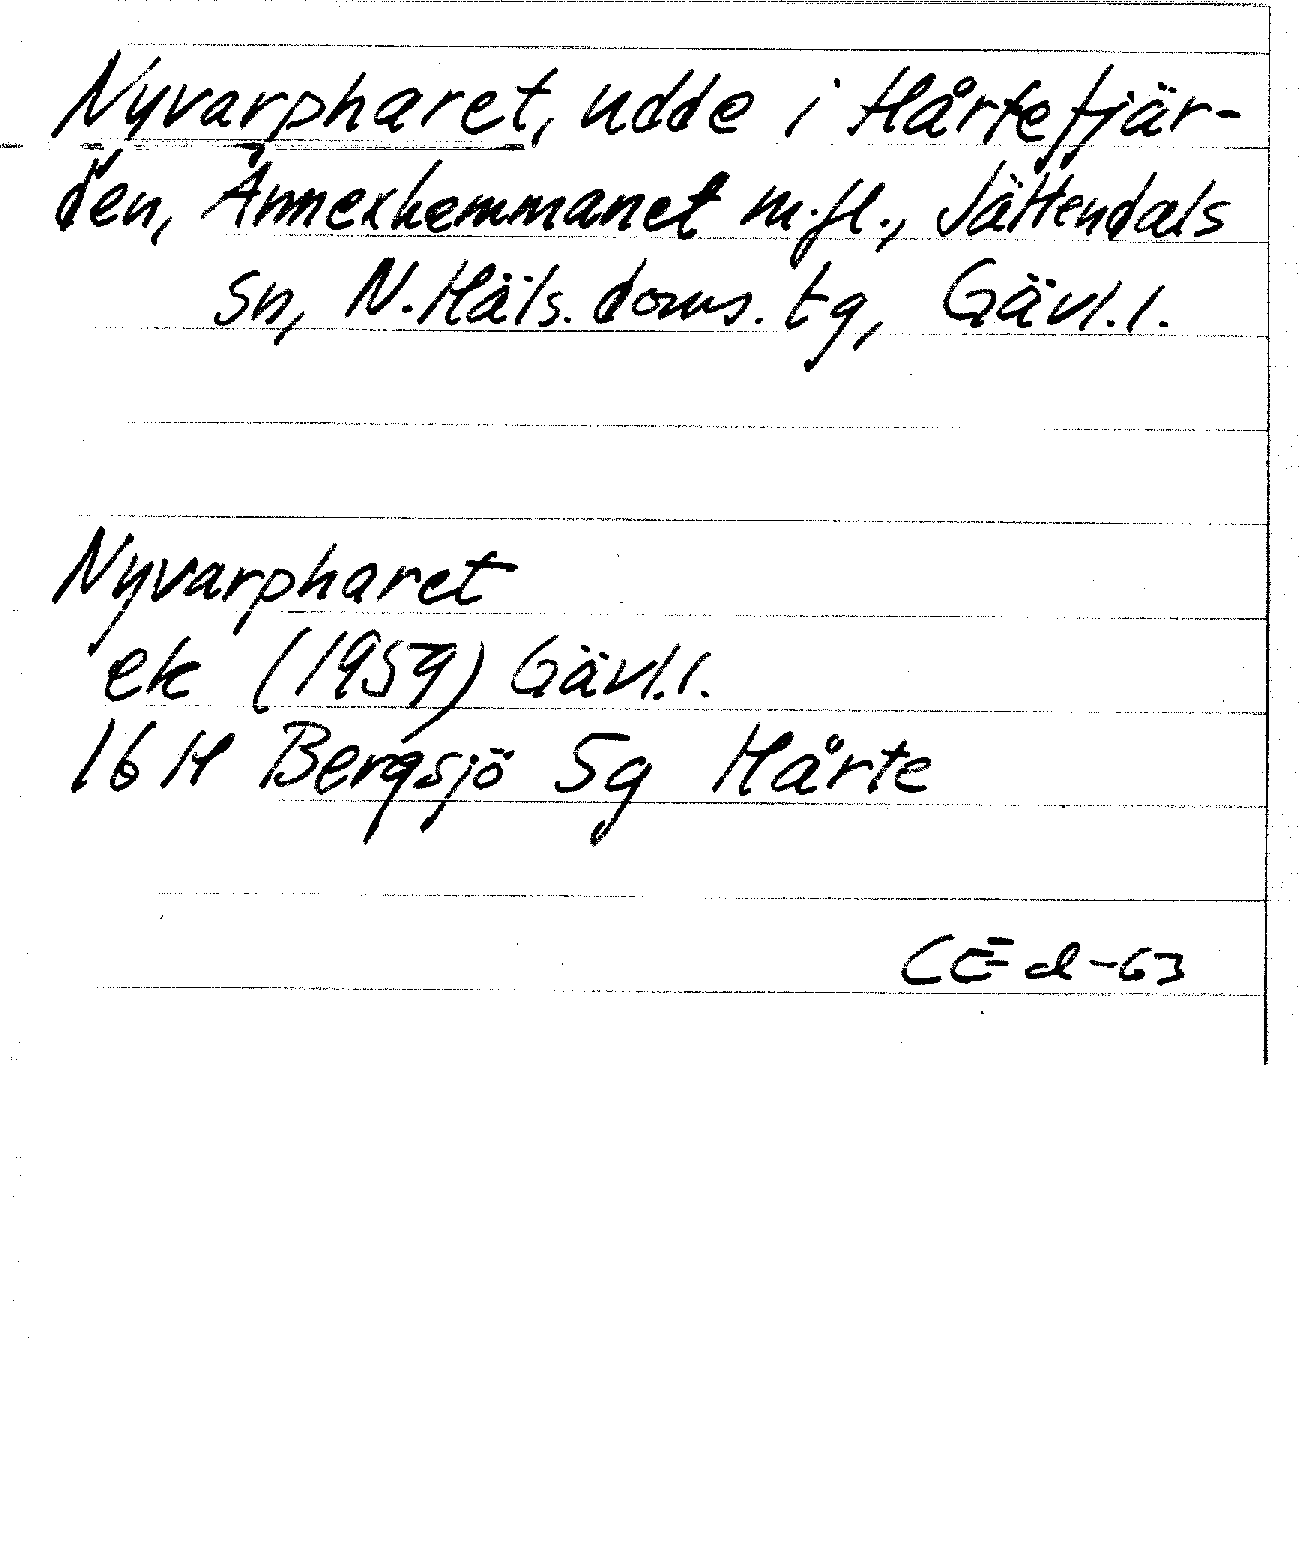 Nyvarpharet, udde i Hårtefjär-
den, Annexhemmanet m.fl., Jättendals
sn, N.Häls. doms. tg, Gävl.l.
Nyvarpharet
ek (1959) Gävl.l.
16 H Bergsjö 5g Hårte
CEd-63